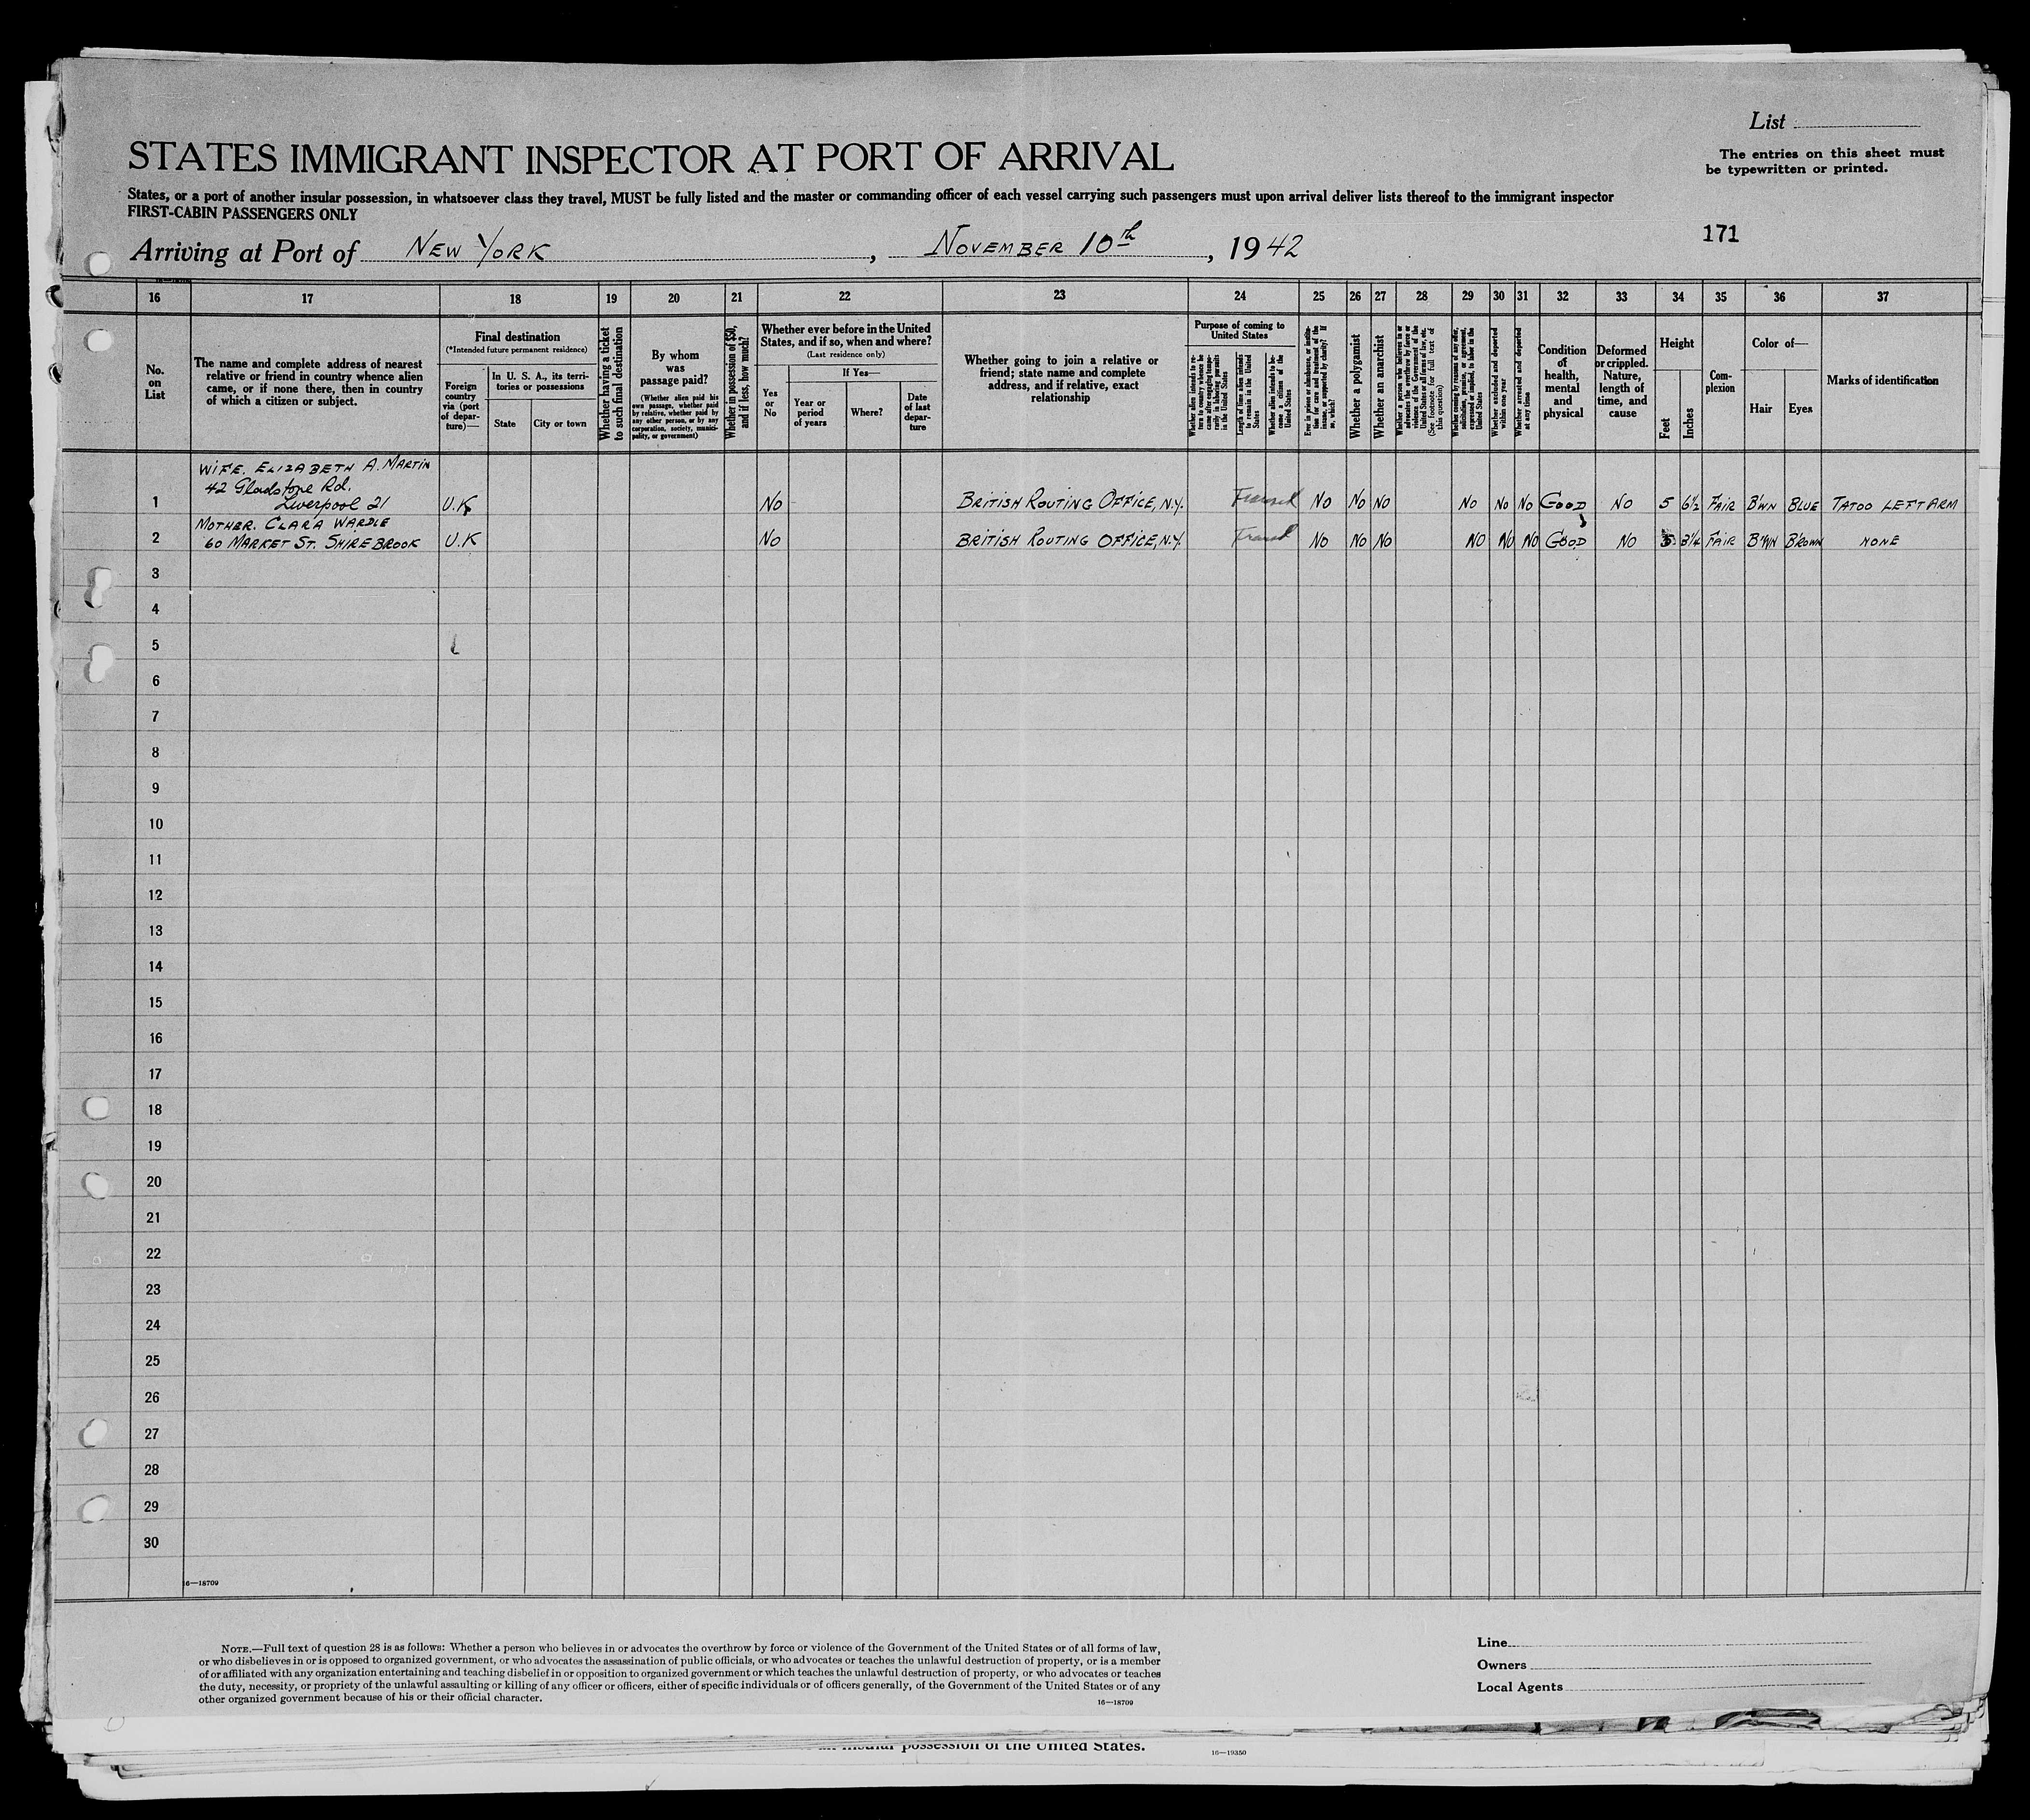 List
The entries on this sheet must
be typewritten or printed.
STATES IMMIGRANT INSPECTOR AT PORT OF ARRIVAL
States, or a port of another insular possession, in whatsoever class they travel, MUST be fully listed and the master or commanding officer of each vessel carrying such passengers must upon arrival deliver lists thereof to the immigrant inspector
FIRST-CABIN PASSENGERS ONLY
171
Arriving at Port of NEW YORK, NOVEMBER 10th, 1942
16 17 18 19 20 21 22 23 24 25 26 27 28 29 30 31 32 33 34 35 36 37
No.
on
List
The name and complete address of nearest
relative or friend in country whence alien
came, or if none there, then in country
of which a citizen or subject.
Final destination
(*Intended future permanent residence)
Foreign
country
via (port
of depar-
ture)—
In U. S. A., its terri-
tories or possessions
State
City or town
Whether having a ticket
to such final destination
By whom
was
passage paid?
(Whether alien paid his
own passage, whether paid
by relative, whether paid by
any other person, or by any
corporation, society, munici-
pality, or government)
Whether in possession of $50,
and if less, how much?
Whether ever before in the United
States, and if so, when and where?
(Last residence only)
Yes
or
No
If Yes—
Year or
period
of years
Where?
Date
of last
depar-
ture
Whether going to join a relative or
friend; state name and complete
address, and if relative, exact
relationship
Purpose of coming to
United States
Whether alien intends to re-
turn to country whence he
came after engaging tempo-
rarily in laboring pursuits
in the United States
Length of time alien intends
to remain in the United
States
Whether alien intends to be-
come a citizen of the
United States
Ever in prison or almshouse, or institu-
tion for care and treatment of the
insane, or supported by charity? If
so, which?
Whether a polygamist
Whether an anarchist
Whether a person who believes in or
advocates the overthrow by force or
violence of the Government of the
United States or all forms of law, etc.
(See footnote for full text of
this question)
Whether coming by reasons of any offer,
solicitation, promise, or agreement,
expressed or implied, to labor in the
United States
Whether excluded and deported
within one year
Whether arrested and deported
at any time
Condition
of
health,
mental
and
physical
Deformed
or crippled.
Nature,
length of
time, and
cause
Height
Feet
Inches
Com-
plexion
Color of—
Hair
Eyes
Marks of identification
WIFE. ELIZABETH A. MARTIN
42 Gladstone Rd.
1 Liverpool 21 U.K No BRITISH ROUTING OFFICE, N.Y. Transit NO NO NO NO NO NO GOOD NO 5 6½ FAIR B'WN BLUE TATOO LEFT ARM
MOTHER. CLARA WARDLE
2 60 MARKET ST. SHIREBROOK U.K No BRITISH ROUTING OFFICE, N.Y. Transit NO NO NO NO NO NO GOOD NO 5 3¼ FAIR B'WN BROWN NONE
3
4
5
6
7
8
9
10
11
12
13
14
15
16
17
18
19
20
21
22
23
24
25
26
27
28
29
30
16—18709
NOTE.—Full text of question 28 is as follows: Whether a person who believes in or advocates the overthrow by force or violence of the Government of the United States or of all forms of law,
or who disbelieves in or is opposed to organized government, or who advocates the assassination of public officials, or who advocates or teaches the unlawful destruction of property, or is a member
of or affiliated with any organization entertaining and teaching disbelief in or opposition to organized government or which teaches the unlawful destruction of property, or who advocates or teaches
the duty, necessity, or propriety of the unlawful assaulting or killing of any officer or officers, either of specific individuals or of officers generally, of the Government of the United States or of any
other organized government because of his or their official character.
16—18709
Line
Owners
Local Agents
insular possession of the United States.
16—19350